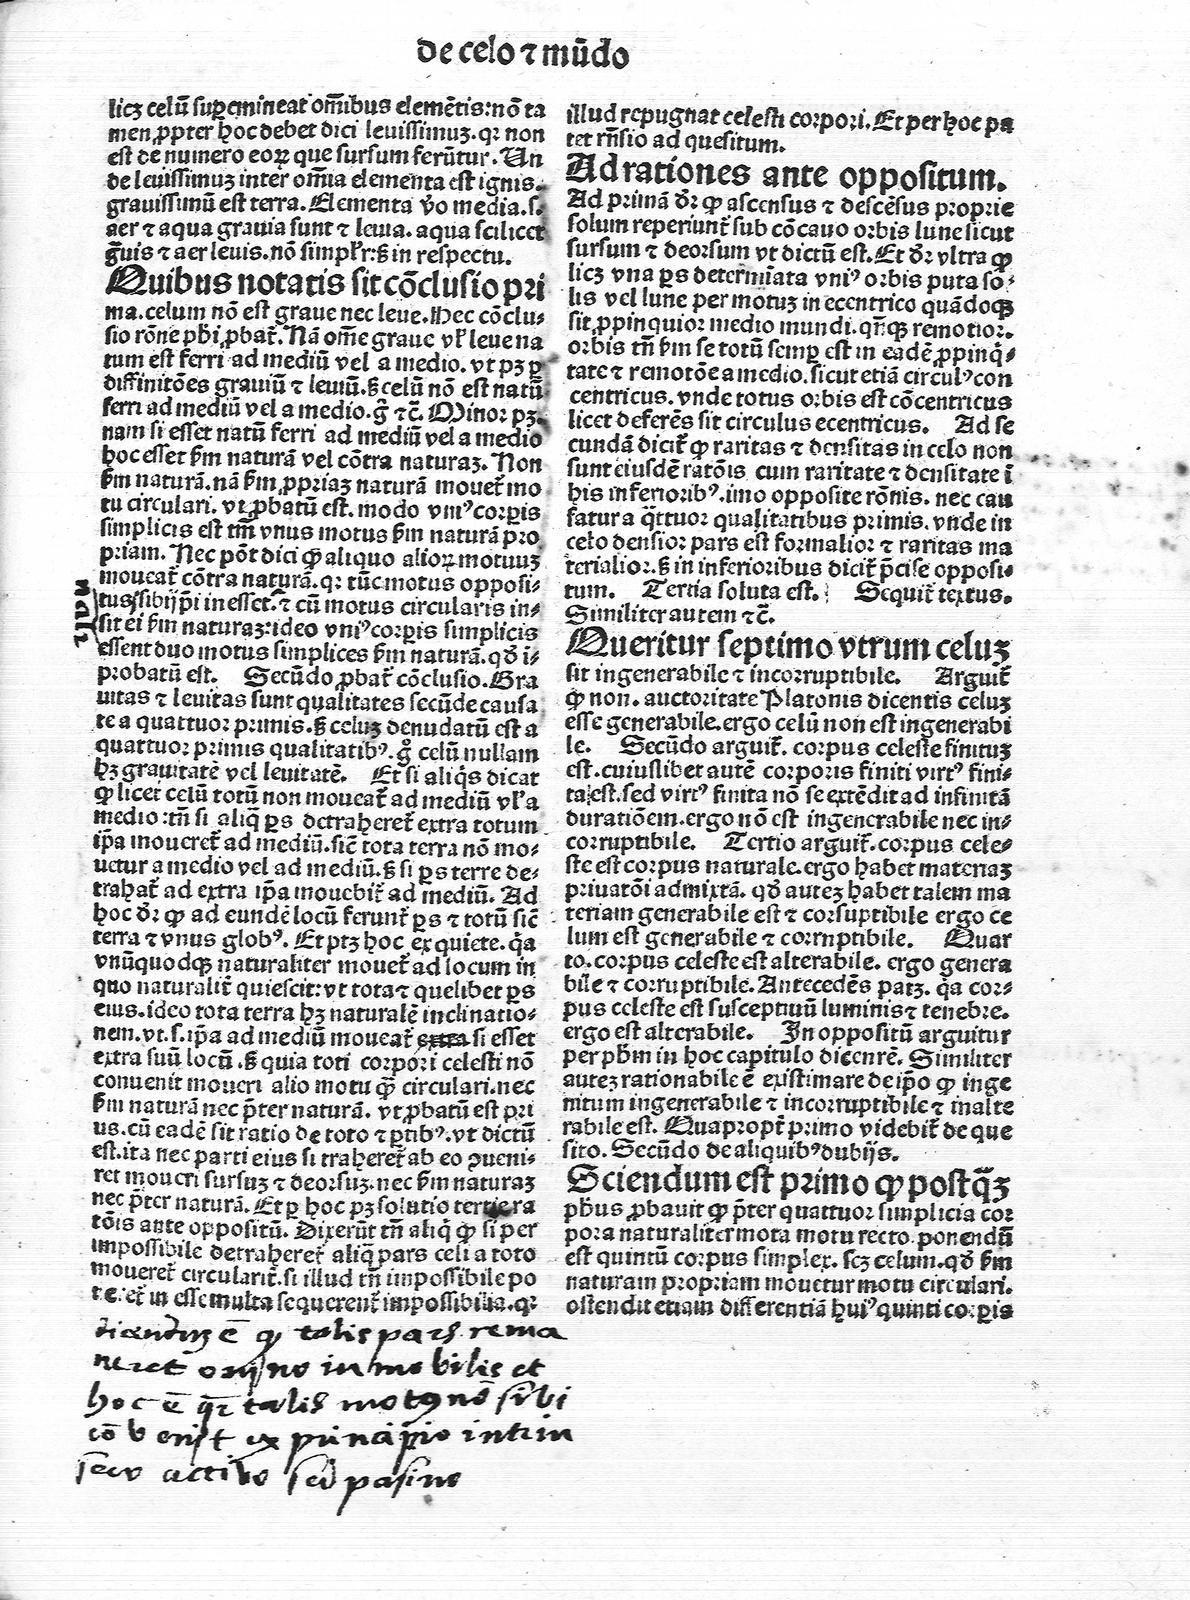 de celo ⁊ mūdo
licꝫ celū suꝑemineat om̄ibus elemētis: nō ta
men ꝓpter hoc debet dici leuissimuꝫ. qꝛ non
est de numero eoꝝ que sursum ferūtur. Un
de leuissimuꝫ inter om̄ia elementa est ignis.
grauissimū est terra. Elementa v̄o media. s.
aer ⁊ aqua grauia sunt ⁊ leuia. aqua scilicet
g̃uis ⁊ aer leuis. nō simpl̓r: ꝫ in respectu.
Quibus notatis sit cōclusio pri
ma. celum nō est graue nec leue. Hec cōclu⸗
sio rōne ph̓i ꝓbat̃. Nā om̄e graue vl̓ leue na
tum est ferri ad mediū vel a medio. vt pꝫ ꝑ
diffinitōes grauiū ⁊ leuiū. ꝫ celū nō est natū
ferri ad mediū vel a medio. g̃ ⁊c̃. Minor pꝫ.
nam si esset natū ferri ad mediū vel a medio
hoc esset ẜm naturā vel cōtra naturaꝫ. Non
ẜm naturā. nā ẜm ꝓpriaꝫ naturā mouet̃ mo
tu circulari. vt ꝓbatū est. modo vniꝰ corꝑis
simplicis est tm̄ vnus motus ẜm naturā pro
priam. Nec pōt dici ꝙ aliquo alioꝝ motuuꝫ
moueat̃ cōtra naturā. qꝛ tūc motus opposi⸗
tus sibijp̄i inesset. ⁊ cū motus circularis in⸗
sit ei ẜm naturaꝫ: ideo vniꝰ corꝑis simplicis
essent duo motus simplices ẜm naturā. qđ i⸗
probatū est. Secūdo ꝓbat̃ cōclusio. Gra
uitas ⁊ leuitas sunt qualitates secūde causa
te a quattuor primis. ꝫ celuꝫ denudatū est a
quattuor primis qualitatibꝰ. g̊ celū nullam
hꝫ grauitatē vel leuitatē. Et si aliq̇s dicat
ꝙ licet celū totū non moueat̃ ad mediū vl̓ a
medio: tn̄ si aliq̄ ꝑs detraheret̃ extra totum
ip̄a moueret̃ ad mediū. sic̄ tota terra nō mo⸗
uetur a medio vel ad mediū. ꝫ si ꝑs terre de⸗
trahat̃ ad extra ip̄a mouebit̃ ad mediū. Ad
hoc dr̃ ꝙ ad eundē locū ferunt̃ ꝑs ⁊ totū sic̄
terra ⁊ vnus globꝰ. Et ptꝫ hoc ex quiete. q̇a
vnūquodqꝫ naturaliter mouet̃ ad locum in
quo naturalit̃ quiescit: vt tota ⁊ quelibet ꝑs
eius. ideo tota terra hꝫ naturalē inclinatio⸗
nem. vt. s. ip̄a ad mediū moueat̃ extra si esset
extra suū locū. ꝫ quia toti corpori celesti nō
conuenit moueri alio motu q̄ꝫ circulari. nec
ẜm naturā nec p̄ter naturā. vt ꝓbatū est pri
us. cū eadē sit ratio de toto ⁊ ꝑtibꝰ. vt dictū
est. ita nec parti eius si traheret̃ ab eo ꝯueni⸗
ret moueri sursuꝫ ⁊ deorsuꝫ. nec ẜm naturaꝫ
nec p̄ter naturā. Et ꝑ hoc pꝫ solutio tertie ra
tōis ante oppositū. Dixerūt tn̄ aliq̇ ꝙ si per
impossibile detraheret̃ aliq̄ pars celi a toto
moueret̃ circularit̃. si illud tn̄ impossibile po
te. et in esse multa sequerent̃ impossibilia. qꝛ
talis pars rema
neret omnino in mobilis et
hoc ē qꝛ talis motꝰ nō sibi
cōvenit ex principio intrin
seco activo sed pasivo
illud repugnat celesti corpori. Et per hoc pa
tet rn̄sio ad quesitum.
Ad rationes ante oppositum.
Ad primā dr̃ ꝙ ascensus ⁊ descēsus proprie
solum reperiunt̃ sub cōcauo orbis lune sicut
sursum ⁊ deorsum vt dictū est. Et dr̃ vltra ꝙ
licꝫ vna ꝑs determīata vniꝰ orbis puta so⸗
lis vel lune per motuꝫ in ecentrico quādoqꝫ
sit ꝓpinquior medio mundi. qn̄qꝫ remotior.
orbis tn̄ ẜm se totū semꝑ est in eadē ꝓpinq̇⸗
tate ⁊ remotōe a medio. sicut etiā circulꝰ con
centricus. vnde totus orbis est cōcentricus
licet deferēs sit circulus ecentricus. Ad se
cundā dicit̃ ꝙ raritas ⁊ densitas in celo non
sunt eiusdē ratōis cum raritate ⁊ densitate ī
his inferioribꝰ. imo opposite rōnis. nec cau
satur a q̈ttuor qualitatibus primis. vnde in
celo densior pars est formalior ⁊ raritas ma
terialior. ꝫ in inferioribus dicit̃ p̄cise opposi⸗
tum. Tertia soluta est. Sequit̃ textus.
Similiter autem ⁊c̃.
Queritur septimo vtrum celuꝫ
sit ingenerabile ⁊ incorruptibile. Arguit̃
ꝙ non. auctoritate Platonis dicentis celuꝫ
esse generabile. ergo celū non est ingenerabi
le. Secūdo arguit̃. corpus celeste finituꝫ
est. cuiuslibet autē corporis finiti virtꝰ fini⸗
ta est. sed virtꝰ finita nō se extēdit ad infinitā
duratiōem. ergo nō est ingenerabile nec in⸗
corruptibile. Tertio arguit̃. corpus cele⸗
ste est corpus naturale. ergo habet materiaꝫ
priuatōi admixtā. qđ auteꝫ habet talem ma
teriam generabile est ⁊ corruptibile ergo ce
lum est generabile ⁊ corruptibile. Quar
to. corpus celeste est alterabile. ergo genera
bile ⁊ corruptibile. Antecedēs patꝫ. q̇a cor⸗
pus celeste est susceptiuū luminis ⁊ tenebre.
ergo est alterabile. In oppositū arguitur
per ph̓m in hoc capitulo dicentē. Similiter
auteꝫ rationabile ē existimare de ip̄o ꝙ inge
nitum ingenerabile ⁊ incorruptibile ⁊ inalte
rabile est. Quapropt̃ primo videbit̃ de que
sito. Secūdo de aliquibꝰ dubijs.
Sciendum est primo ꝙ postq̄ꝫ
ph̓us ꝓbauit ꝙ p̄ter quattuor simplicia cor
pora naturaliter mota motu recto ponendū
est quintū corpus simplex. scꝫ celum. qđ ẜm
naturam propriam mouetur motu circulari.
ostendit etiam differentiā huiꝰ quinti corꝑis